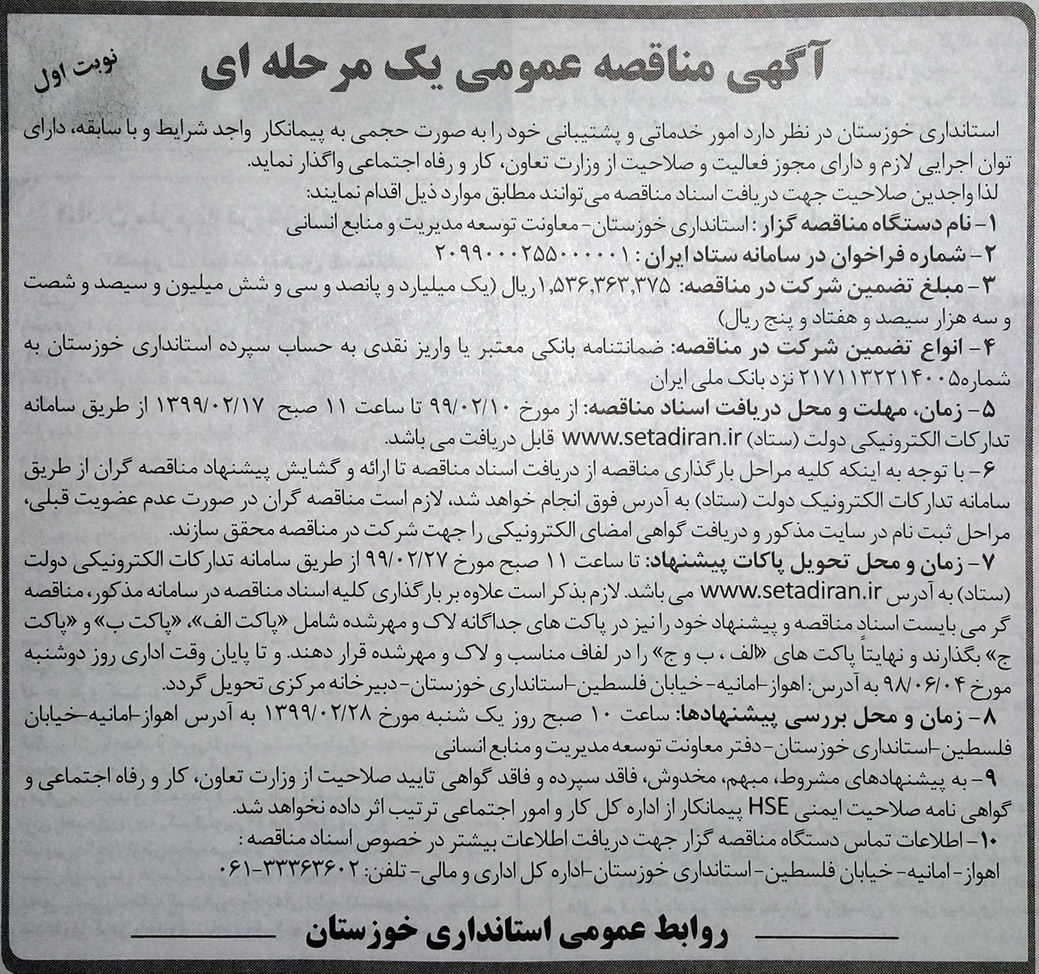 نوبت اول
آگهی مناقصه عمومی یک مرحله ای
استانداری خوزستان در نظر دارد امور خدماتی و پشتیبانی خود را به صورت حجمی به پیمانکار واجد شرایط و با سابقه، دارای
توان اجرایی لازم و دارای مجوز فعالیت و صلاحیت از وزارت تعاون، کار و رفاه اجتماعی واگذار نماید.
لذا واجدین صلاحیت جهت دریافت اسناد مناقصه می‌توانند مطابق موارد ذیل اقدام نمایند:
۱- نام دستگاه مناقصه گزار : استانداری خوزستان- معاونت توسعه مدیریت و منابع انسانی
۲- شماره فراخوان در سامانه ستاد ایران : ۲۰۹۹۰۰۰۲۵۵۰۰۰۰۰۱
۳- مبلغ تضمین شرکت در مناقصه: ۱,۵۳۶,۳۶۳,۳۷۵ ریال (یک میلیارد و پانصد و سی و شش میلیون و سیصد و شصت
و سه هزار سیصد و هفتاد و پنج ریال)
۴- انواع تضمین شرکت در مناقصه: ضمانتنامه بانکی معتبر یا واریز نقدی به حساب سپرده استانداری خوزستان به
شماره۲۱۷۱۱۳۲۲۱۴۰۰۵ نزد بانک ملی ایران
۵- زمان، مهلت و محل دریافت اسناد مناقصه: از مورخ ۹۹/۰۲/۱۰ تا ساعت ۱۱ صبح ۱۳۹۹/۰۲/۱۷ از طریق سامانه
تدارکات الکترونیکی دولت (ستاد) www.setadiran.ir قابل دریافت می باشد.
۶- با توجه به اینکه کلیه مراحل بارگذاری مناقصه از دریافت اسناد مناقصه تا ارائه و گشایش پیشنهاد مناقصه گران از طریق
سامانه تدارکات الکترونیک دولت (ستاد) به آدرس فوق انجام خواهد شد، لازم است مناقصه گران در صورت عدم عضویت قبلی،
مراحل ثبت نام در سایت مذکور و دریافت گواهی امضای الکترونیکی را جهت شرکت در مناقصه محقق سازند.
۷- زمان و محل تحویل پاکات پیشنهاد: تا ساعت ۱۱ صبح مورخ ۹۹/۰۲/۲۷ از طریق سامانه تدارکات الکترونیکی دولت
(ستاد) به آدرس www.setadiran.ir می باشد. لازم بذکر است علاوه بر بارگذاری کلیه اسناد مناقصه در سامانه مذکور، مناقصه
گر می بایست اسناد مناقصه و پیشنهاد خود را نیز در پاکت های جداگانه لاک و مهرشده شامل «پاکت الف»، «پاکت ب» و «پاکت
ج» بگذارند و نهایتاً پاکت های «الف ، ب و ج» را در لفاف مناسب و لاک و مهرشده قرار دهند. و تا پایان وقت اداری روز دوشنبه
مورخ ۹۸/۰۶/۰۴ به آدرس: اهواز- امانیه- خیابان فلسطین-استانداری خوزستان- دبیرخانه مرکزی تحویل گردد.
۸- زمان و محل بررسی پیشنهادها: ساعت ۱۰ صبح روز یک شنبه مورخ ۱۳۹۹/۰۲/۲۸ به آدرس اهواز-امانیه-خیابان
فلسطین-استانداری خوزستان- دفتر معاونت توسعه مدیریت و منابع انسانی
۹- به پیشنهادهای مشروط، مبهم، مخدوش، فاقد سپرده و فاقد گواهی تایید صلاحیت از وزارت تعاون، کار و رفاه اجتماعی و
گواهی نامه صلاحیت ایمنی HSE پیمانکار از اداره کل کار و امور اجتماعی ترتیب اثر داده نخواهد شد.
۱۰- اطلاعات تماس دستگاه مناقصه گزار جهت دریافت اطلاعات بیشتر در خصوص اسناد مناقصه :
اهواز- امانیه- خیابان فلسطین- استانداری خوزستان-اداره کل اداری و مالی- تلفن: ۳۳۳۶۳۶۰۲-۰۶۱
روابط عمومی استانداری خوزستان